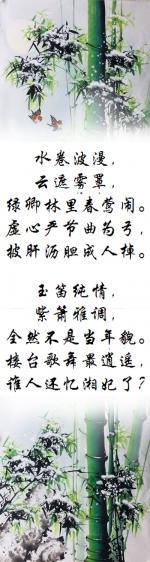 水卷波漫，
云遮雾罩，
绿卿林里春莺闹。
虚心严节曲为弓，
披肝沥胆成人棹。
玉笛纯情，
紫箫雅调，
全然不是当年貌。
楼台歌舞最逍遥，
谁人还忆湘妃了？